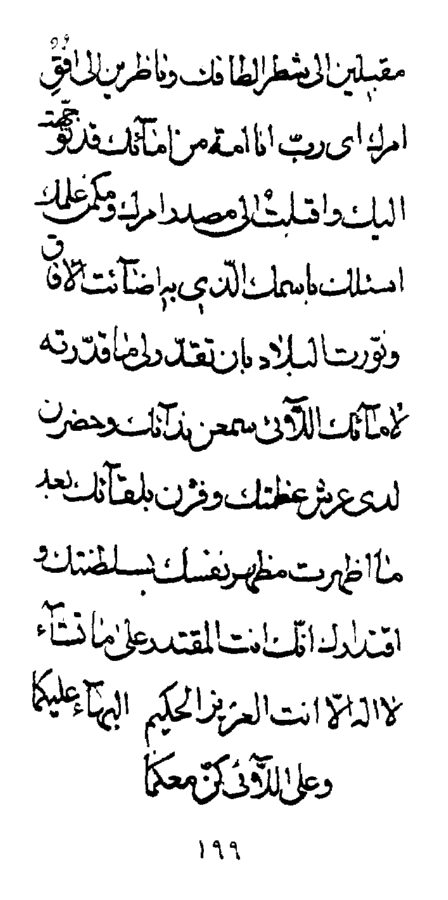 مقبلين الى شطر الطافك و ناظرين الى افق
امرك اى ربّ انا امة من امآئك قد توجّهت
اليك و اقبلت الى مصدر امرك و مكمن علمك
اسئلك باسمك الّذى به اضآئت الآفاق
و نوّرت البلاد بان تقدّر لى ما قدّرته
لامآئك اللّآئى سمعن ندآئك و حضرن
لدى عرش عظمتك و فزن بلقآئك بعد
ما اظهرت مظهر نفسك بسلطنتك و
اقتدارك انّك انت المقتدر على ما تشآء
لا اله الّا انت العزيز الحكيم البهآء عليكما
و على اللّآئى كنّ معكما
١٩٩